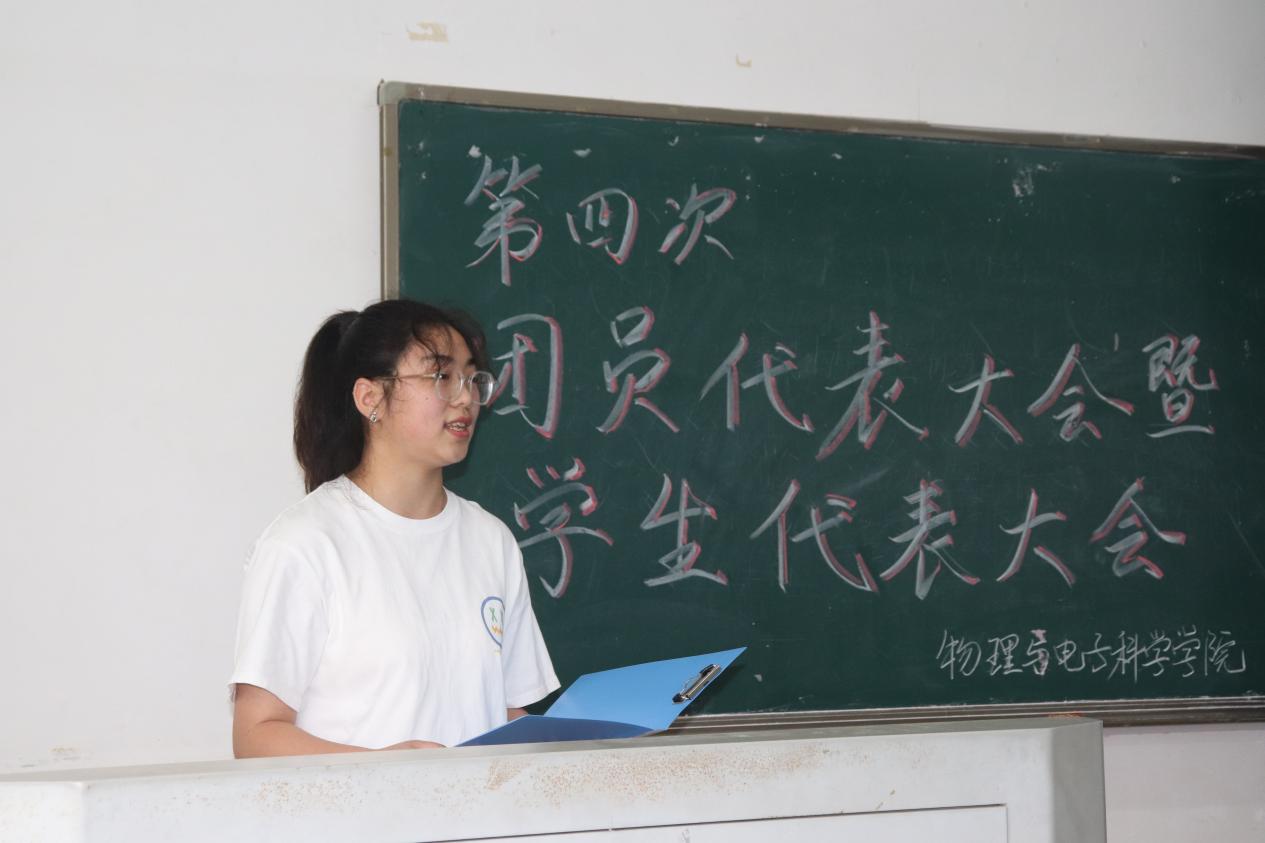 第四次
团员代表大会暨
学生代表大会
物理与电子科学学院